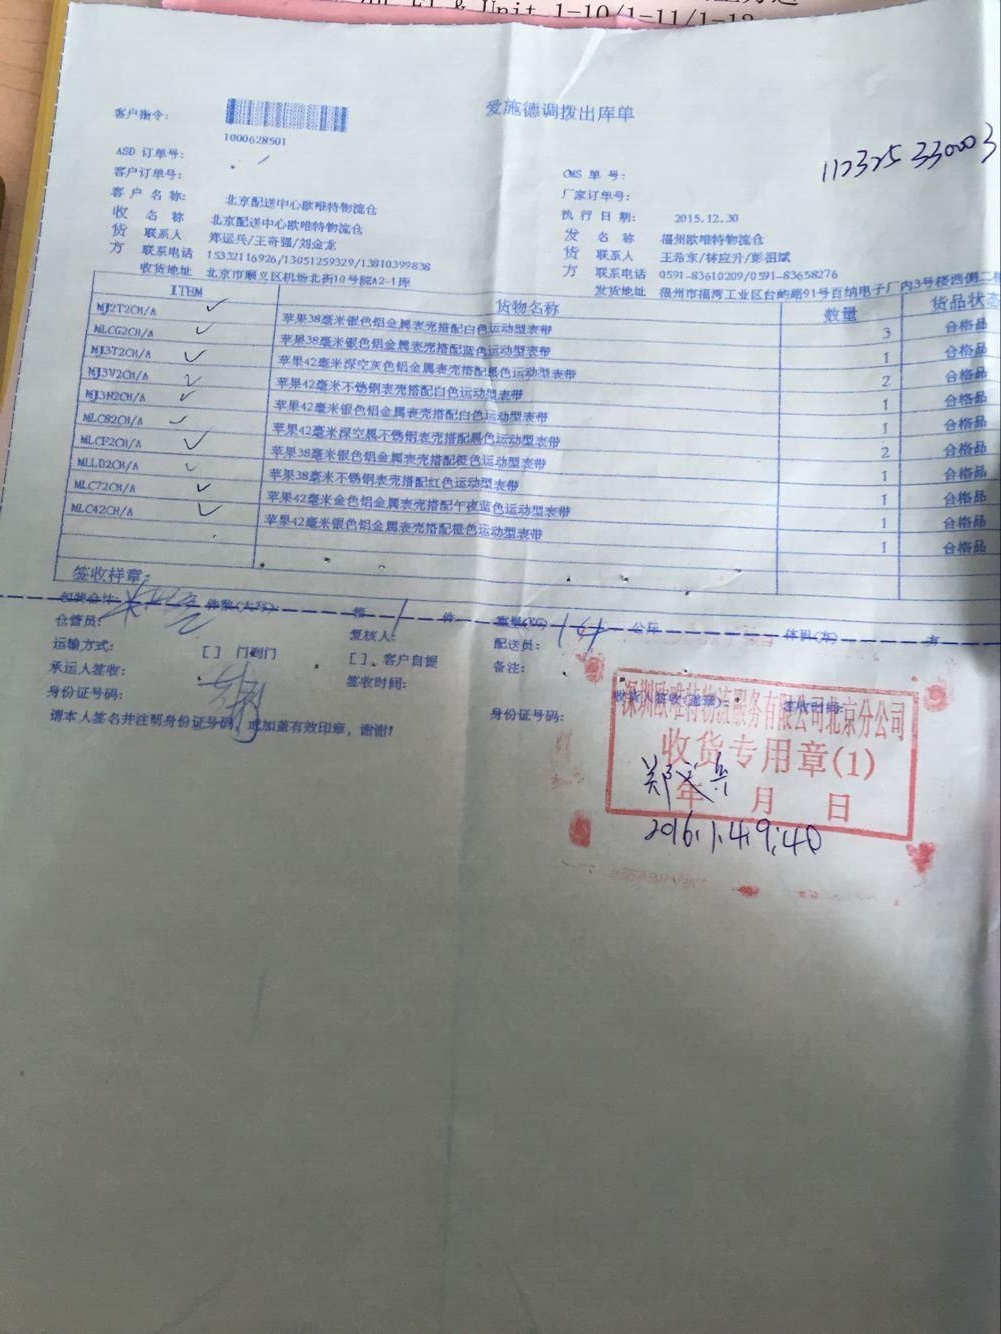 Unit 1-10/1-11/1-12
爱施德调拨出库单
客户指令:
1000628501
112325330003
ASD 订单号:
OMS 单 号:
客户订单号:
厂家订单号:
客 户 名 称: 北京配送中心欧唯特物流仓
执 行 日 期: 2015.12.30
收 名 称 北京配送中心欧唯特物流仓
发 名 称 福州欧唯特物流仓
货 联系人 郑运兵/王奇强/刘金龙
货 联系人 王希东/林应升/彭祖斌
方 联系电话 15332116926/13051259329/13810399838
方 联系电话 0591-83610209/0591-83658276
收货地址 北京市顺义区机场北街10号院A2-1库
发货地址 福州市福湾工业区台屿路91号百纳电子厂内3号楼西侧二
ITEM 货物名称 数量 货品状态
MJ2T2CH/A 苹果38毫米银色铝金属表壳搭配白色运动型表带 3 合格品
MLCG2CH/A 苹果38毫米银色铝金属表壳搭配蓝色运动型表带 1 合格品
MJ3T2CH/A 苹果42毫米深空灰色铝金属表壳搭配黑色运动型表带 2 合格品
MJ3V2CH/A 苹果42毫米不锈钢表壳搭配白色运动型表带 1 合格品
MJ3N2CH/A 苹果42毫米银色铝金属表壳搭配白色运动型表带 1 合格品
MLC82CH/A 苹果42毫米深空黑不锈钢表壳搭配黑色运动型表带 2 合格品
MLCF2CH/A 苹果38毫米银色铝金属表壳搭配橙色运动型表带 1 合格品
MLLD2CH/A 苹果38毫米不锈钢表壳搭配红色运动型表带 1 合格品
MLC72CH/A 苹果42毫米金色铝金属表壳搭配午夜蓝色运动型表带 1 合格品
MLC42CH/A 苹果42毫米银色铝金属表壳搭配橙色运动型表带 1 合格品
签收样章:
包装合计: 件整(大写) 1 件 重量(KG) 14 公斤 体积(方) 方
仓管员: 复核人: 配送员:
运输方式: [ ] 门到门 [ ] 客户自提 备注:
承运人签收: 签收时间: 收货人签收(盖章): 签收时间:
身份证号码: 身份证号码:
请本人签名并注明身份证号码, 或加盖有效印章, 谢谢!
深圳欧唯特物流服务有限公司北京分公司
收货专用章(1)
郑运兵
年 月 日
2016.1.4 9:40